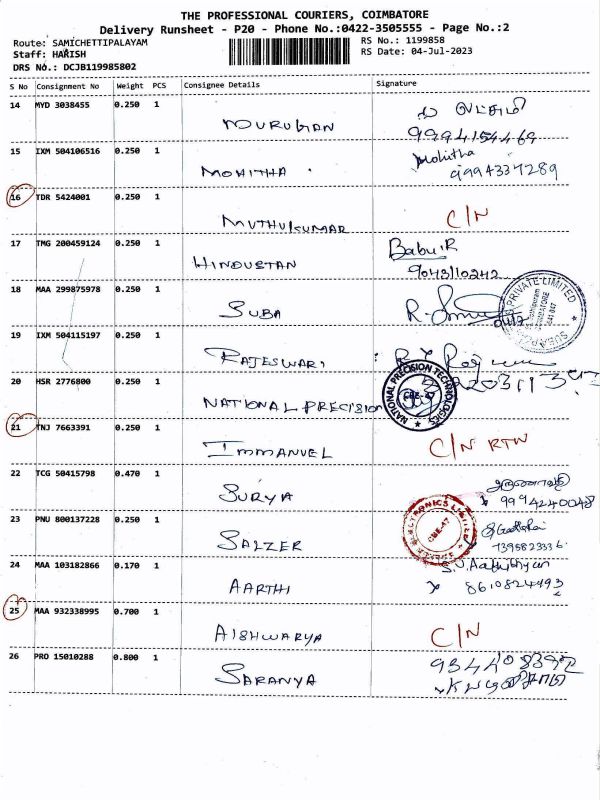 THE PROFESSIONAL COURIERS, COIMBATORE
Delivery Runsheet - P20 - Phone No.:0422-3505555 - Page No.:2
Route: SAMICHETTIPALAYAM
RS No.: 1199858
Staff: HARISH
RS Date: 04-Jul-2023
DRS No.: DCJB119985802
S No Consignment No Weight PCS Consignee Details Signature
14 MYD 3038455 0.250 1
MURUGAN
9994154469
15 IXM 504106516 0.250 1
MOHITHA
Mohitha
9994337289
16 TDR 5424001 0.250 1
MUTHUKUMAR C/N
17 TMG 200459124 0.250 1
HINDUSTAN
Babu.R
9043110242
18 MAA 299875978 0.250 1
SUBA
PRIVATE LIMITED
19 IXM 504115197 0.250 1
RAJESWARI
20 HSR 2776800 0.250 1
NATIONAL PRECISION
NATIONAL PRECISION TECHNOLOGIES
CBE-47
21 TNJ 7663391 0.250 1
IMMANUEL C/N RTN
22 TCG 50415798 0.470 1
SURYA
9994240048
23 PNU 800137228 0.250 1
SALZER
ELECTRONICS LIMITED
CBE-47
24 MAA 103182866 0.170 1
AARTHI
8610824493
25 MAA 932338995 0.700 1
AISHWARYA C/N
26 PRO 15010288 0.800 1
SARANYA